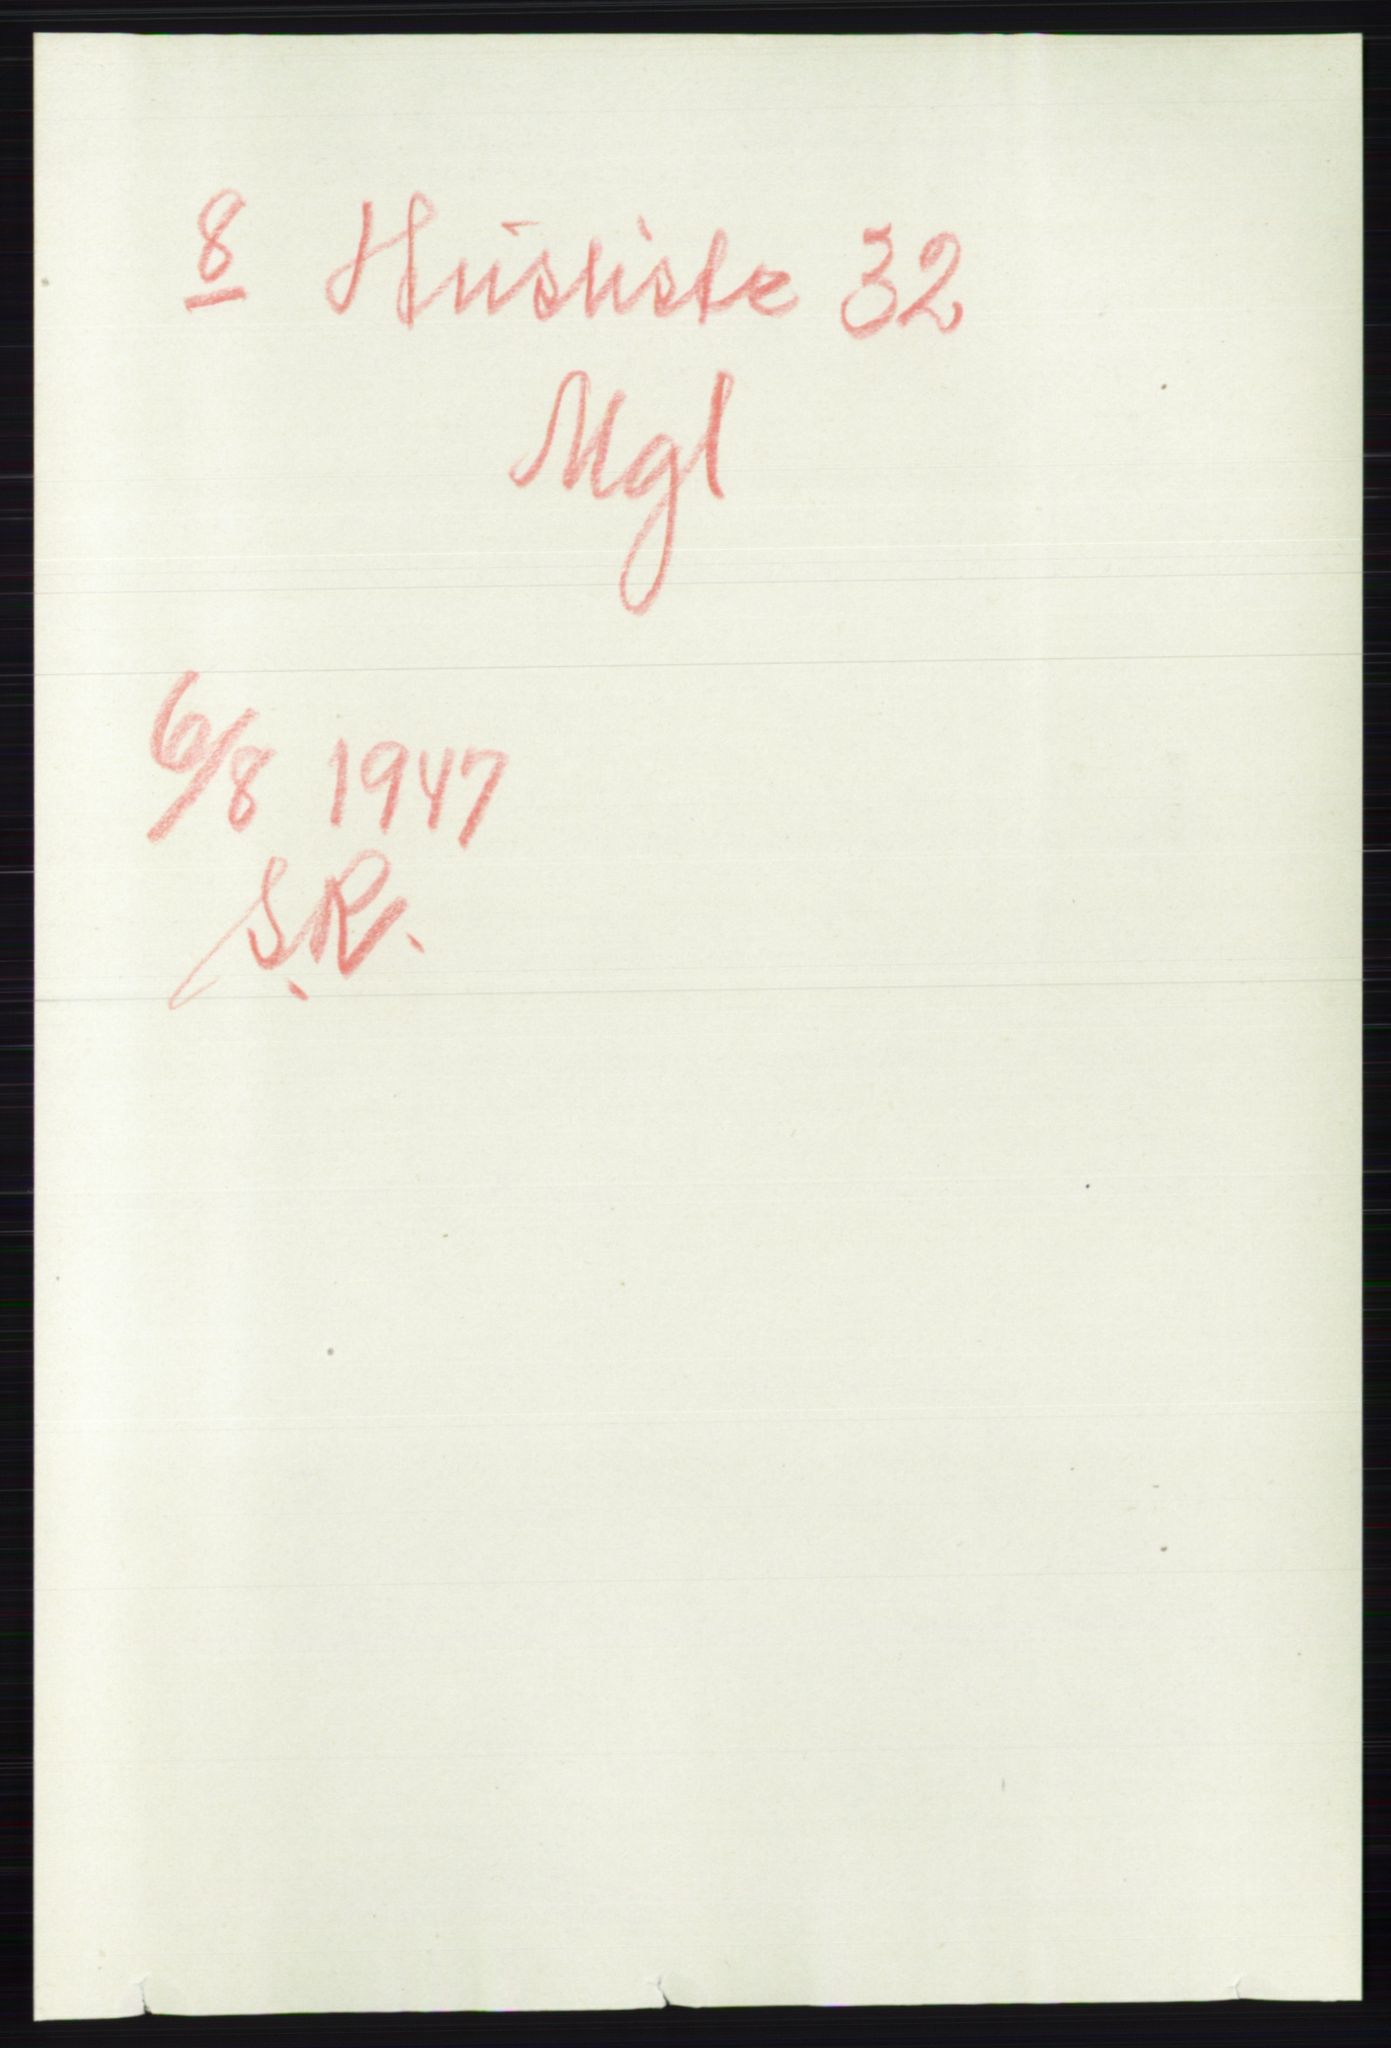 8 Husliste 32
Mgl
6/8 1947
S.R.